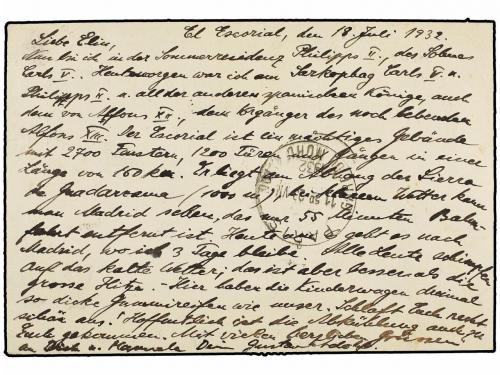 El Escorial, den 18. Juli 1932.
Liebe Elin,
Nun bin ich in der Sommerresidenz Philipps II., des Sohnes
Carls V. Heute morgen war ich am Sarkophag Carls V. u.
Philipps II. u. all der anderen spanischen Könige, auch
dem von Alfons XII., dem Vorgänger des noch lebenden
Alfons XIII. Der Escorial ist ein mächtiges Gebäude
mit 2700 Fenstern, 1200 Türen und Gängen in einer
Länge von 160 km. Er liegt am Abhang der Sierra
de Guadarrama (1000 m). Bei klarem Wetter kann
man Madrid sehen, das nur 55 Minuten Bahn-
fahrt entfernt ist. Heute geht es nach
Madrid, wo ich 3 Tage bleibe. Alle Leute schimpfen
auf das kalte Wetter, das ist aber besser als die
grosse Hitze. - Hier haben die Kinderwagen dreimal
so dicke Gummireifen wie unser. Schlaft Euch recht
schön aus! Hoffentlich ist die Abkühlung auch zu
Euch gekommen. Mit vielen herzlichen Grüssen
an Dich u. Dein Gustav Adolf.